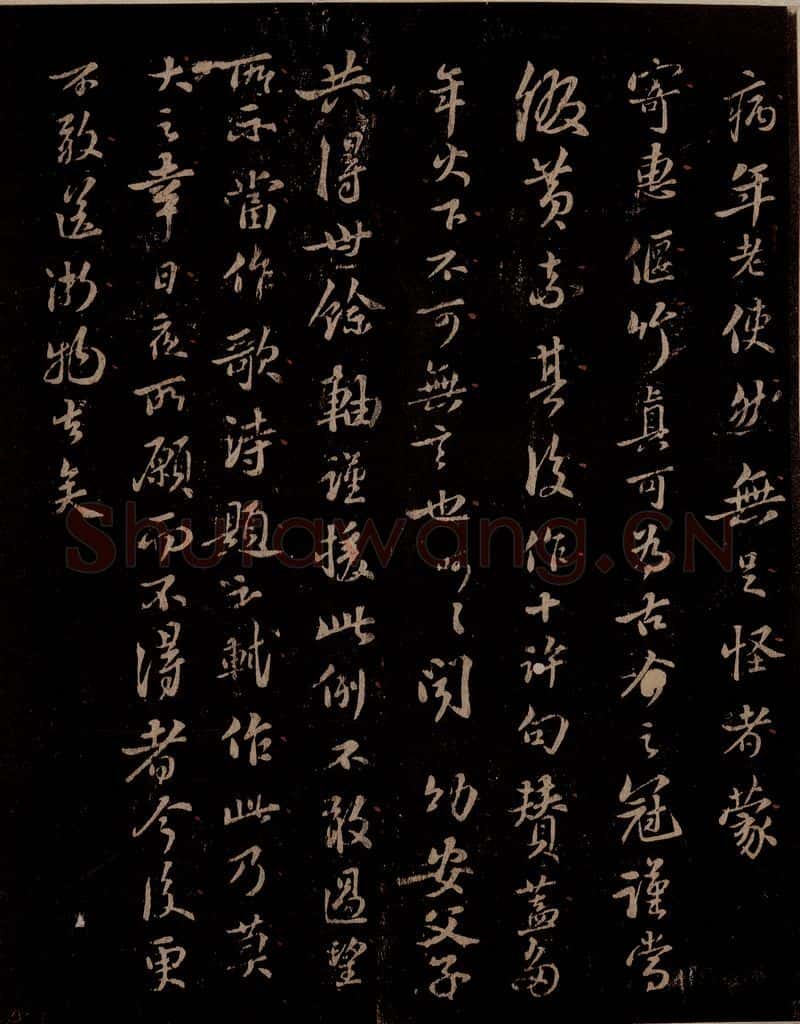 病年老使然無足怪者蒙
寄惠偃竹真可為古今之冠謹當
綴黃素其後作十許句贊蓋多
年火下不可無言也呵々聞 幼安父子
共得世餘軸謹援此例不敢過望
所示當作歌詩題之軾作此乃莫
大之幸日夜所願而不得者今後更
不敢送浙物去矣
Shufawang.CN